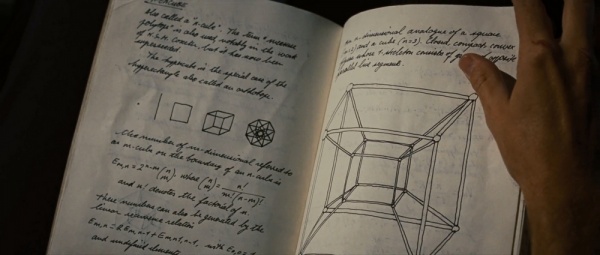 also called a "n-cube". The term "measure
polytope" is also used, notably in the work
of H.S.M. Coxeter, but it has now been
superseded.
The hypercube is the special case of the
hyperrectangle also called an orthotope.
number of m-dimensional referred to
an m-cube on the boundary of an n-cube is
Em,n = 2^n-m (n m), where (n m) = n! / m!(n-m)!
and n! denotes the factorial of n
These numbers can also be generated by the
linear recurrence relation
Em,n = 2Em,n-1 + Em-1,n-1, with E0,0 = 1
and undefined elements
n-dimensional analogue of a square
(n=2) and a cube (n=3). Closed, compact, convex
figure whose 1-skeleton consists of opposite
parallel line segments